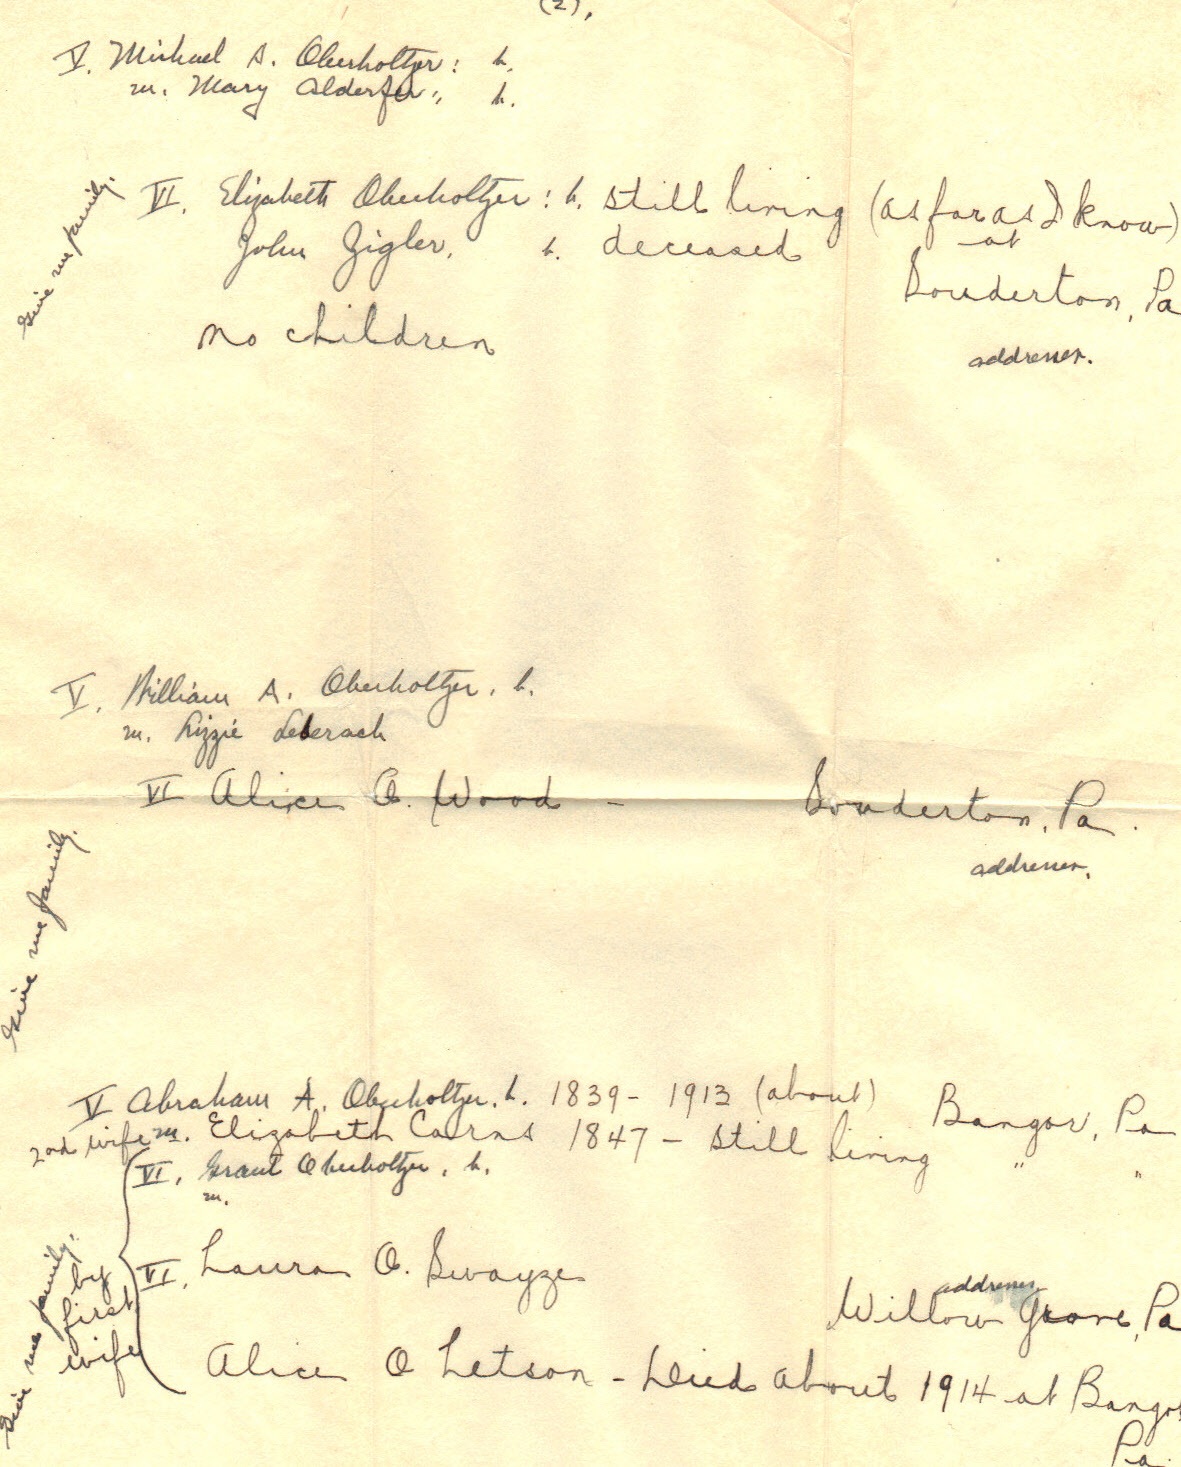 (2).
V. Michael A. Oberholtzer: b.
m. Mary Alderfer: b.
Give me family.
VI. Elizabeth Oberholtzer: b. still living (as far as I know)
John Zigler. b. deceased at
Souderton, Pa
no children
addresses.
V. William A. Oberholtzer. b.
m. Lizzie
VI Alice O. Wood – Souderton, Pa.
addresses.
Give me family.
V Abraham A. Oberholtzer. b. 1839 – 1913 (about) Bangor, Pa
2nd wife m. Elizabeth Cairns 1847 – still living " "
VI. Grant Oberholtzer. b.
m.
VI. Laura O. Swayze
addresses
Willow Grove, Pa
Give me family.
by
first
wife
Alice O Letson – Died about 1914 at Bangor
Pa.